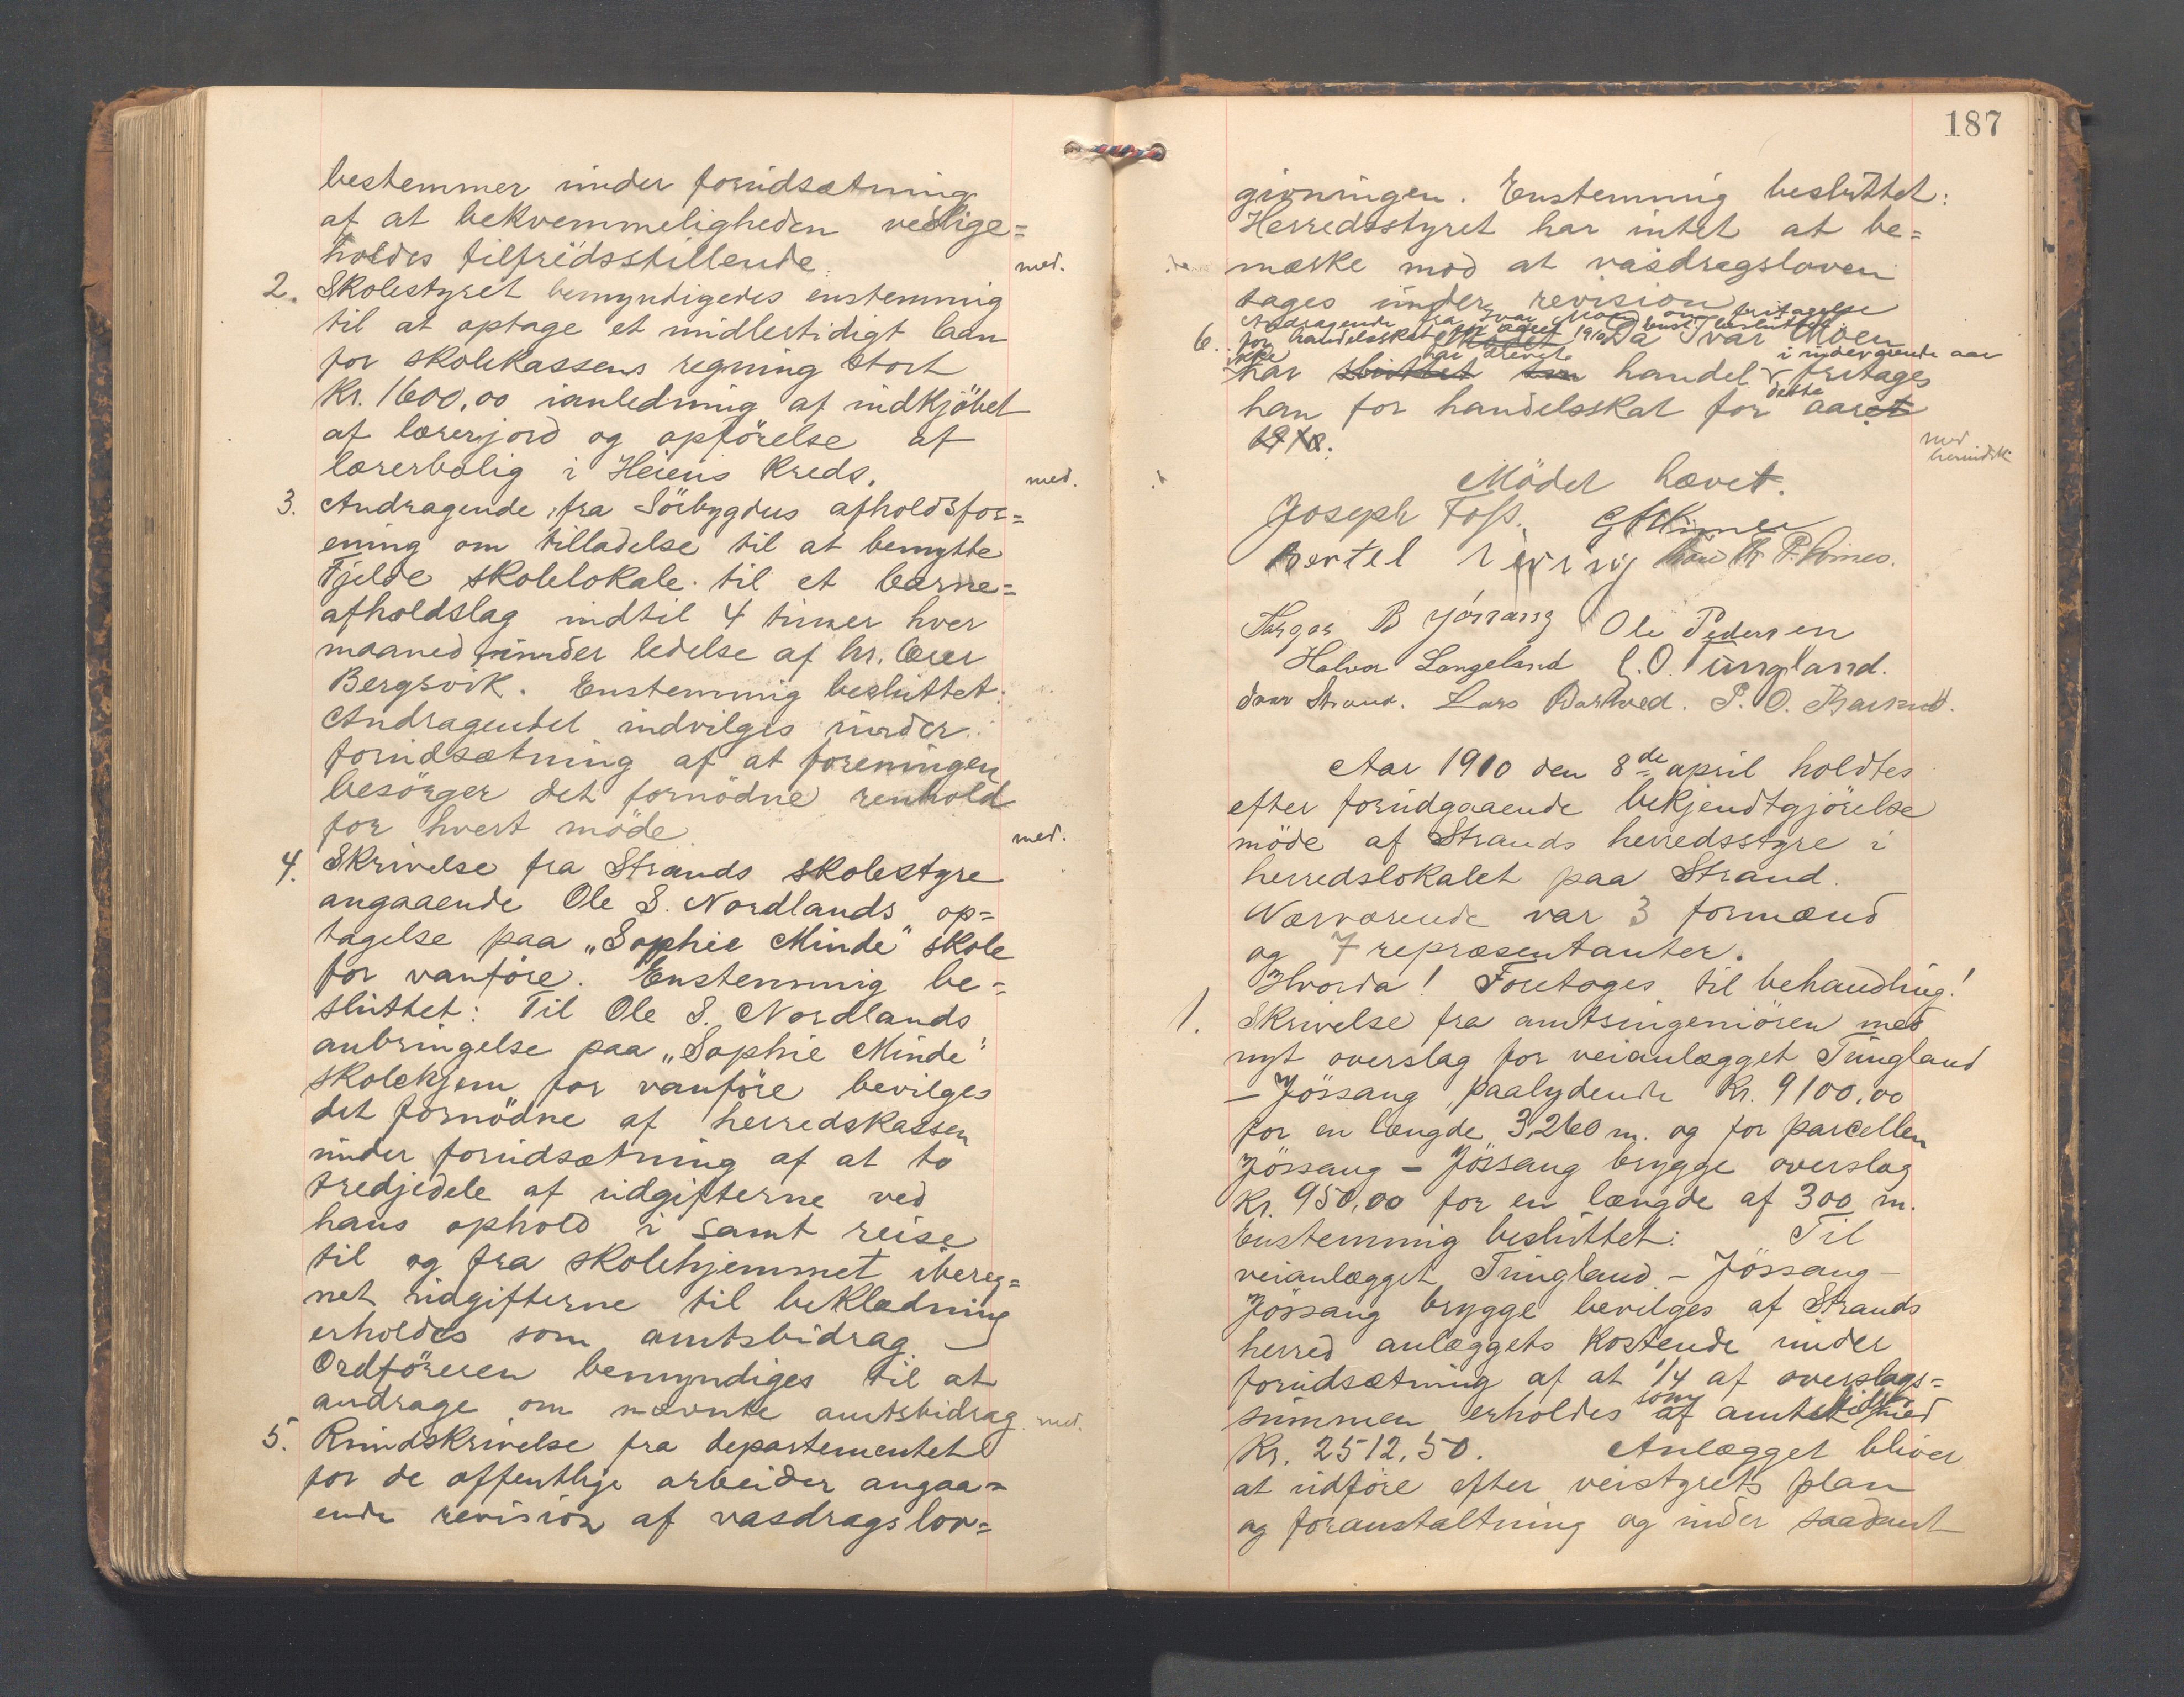 bestemmer under forudsætning
af at bekvemmeligheden vedlige=
holdes tilfredsstillende. med.
2. Skolestyret bemyndigedes enstemmig
til at optage et midlertidigt laan
for skolekassens regning stort
Kr. 1600,00 ianledning af indkjöbet
af lærerjord og opförelse af
lærerbolig i Heiens Kreds. med.
3. Andragende fra Sörbygdens afholdsfor=
ening om tilladelse til at benytte
Fjelde skolelokale til et barne=
afholdslag indtil 4 timer hver
maaned under ledelse af hr. lærer
Bergsvik. Enstemmig besluttet:
Andragendet indvilges under
forudsætning af at foreningen
besörger det fornödne renhold
for hvert möde. med.
4. Skrivelse fra Strands skolestyre
angaaende Ole S. Nordlands op=
tagelse paa „Sophie Minde" skole
for vanföre. Enstemmig be=
sluttet: Til Ole S. Nordlands
anbringelse paa „Sophie Minde"
skolehjem for vanföre bevilges
det fornödne af herredskassen
under forudsætning af at to
tredjedele af udgifterne ved
hans ophold i samt reise
til og fra skolehjemmet ibereg=
net udgifterne til beklædning
erholdes som amtsbidrag. —
Ordföreren bemyndiges til at
andrage om nævnte amtsbidrag. med.
5. Rundskrivelse fra departementet
for de offentlige arbeider angaa=
ende revision af vasdragslov=
187
givningen. Enstemmig besluttet:
Herredsstyret har intet at be=
mærke mod at vasdragsloven
tages under revision.
Andragende fra Ivar Moen om fritagelse
6. for handelsskat for aaret 1910. enst. besluttet:
Mödet Da Ivar Moen
ikke har drevet i indeværende aar
har sluttet sin handel fritages
han for handelsskat for dette aaret
1910. med
Mödet hævet.
Joseph Foss.
Bertel
Torger B Jössang Ole Pedersen
Halvor Langeland L. O. Tungland.
Ivar Strand. Lars Barkved. P. O.
Aar 1910 den 8de april holdtes
efter forudgaaende bekjendtgjörelse
möde af Strands herredsstyre i
herredslokalet paa Strand.
Nærværende var 3 formænd
og 7 repræsentanter.
Hvorda! Foretoges til behandling!
1. Skrivelse fra amtsingeniören med
nyt overslag for veianlægget Tungland
– Jössang, paalydende Kr. 9100,00
for en længde 3,260 m. og for parcellen
Jössang – Jössang brygge overslag
Kr. 950,00 for en længde af 300 m.
Enstemmig besluttet: Til
veianlægget Tungland – Jössang –
Jössang brygge bevilges af Strands
herred anlæggets kostende under
forudsætning af at 1/4 af overslags=
summen erholdes som af amtsbidrag med
Kr. 2512,50. Anlægget bliver
at udföre efter veistyrets plan
og foranstaltning og under saadant